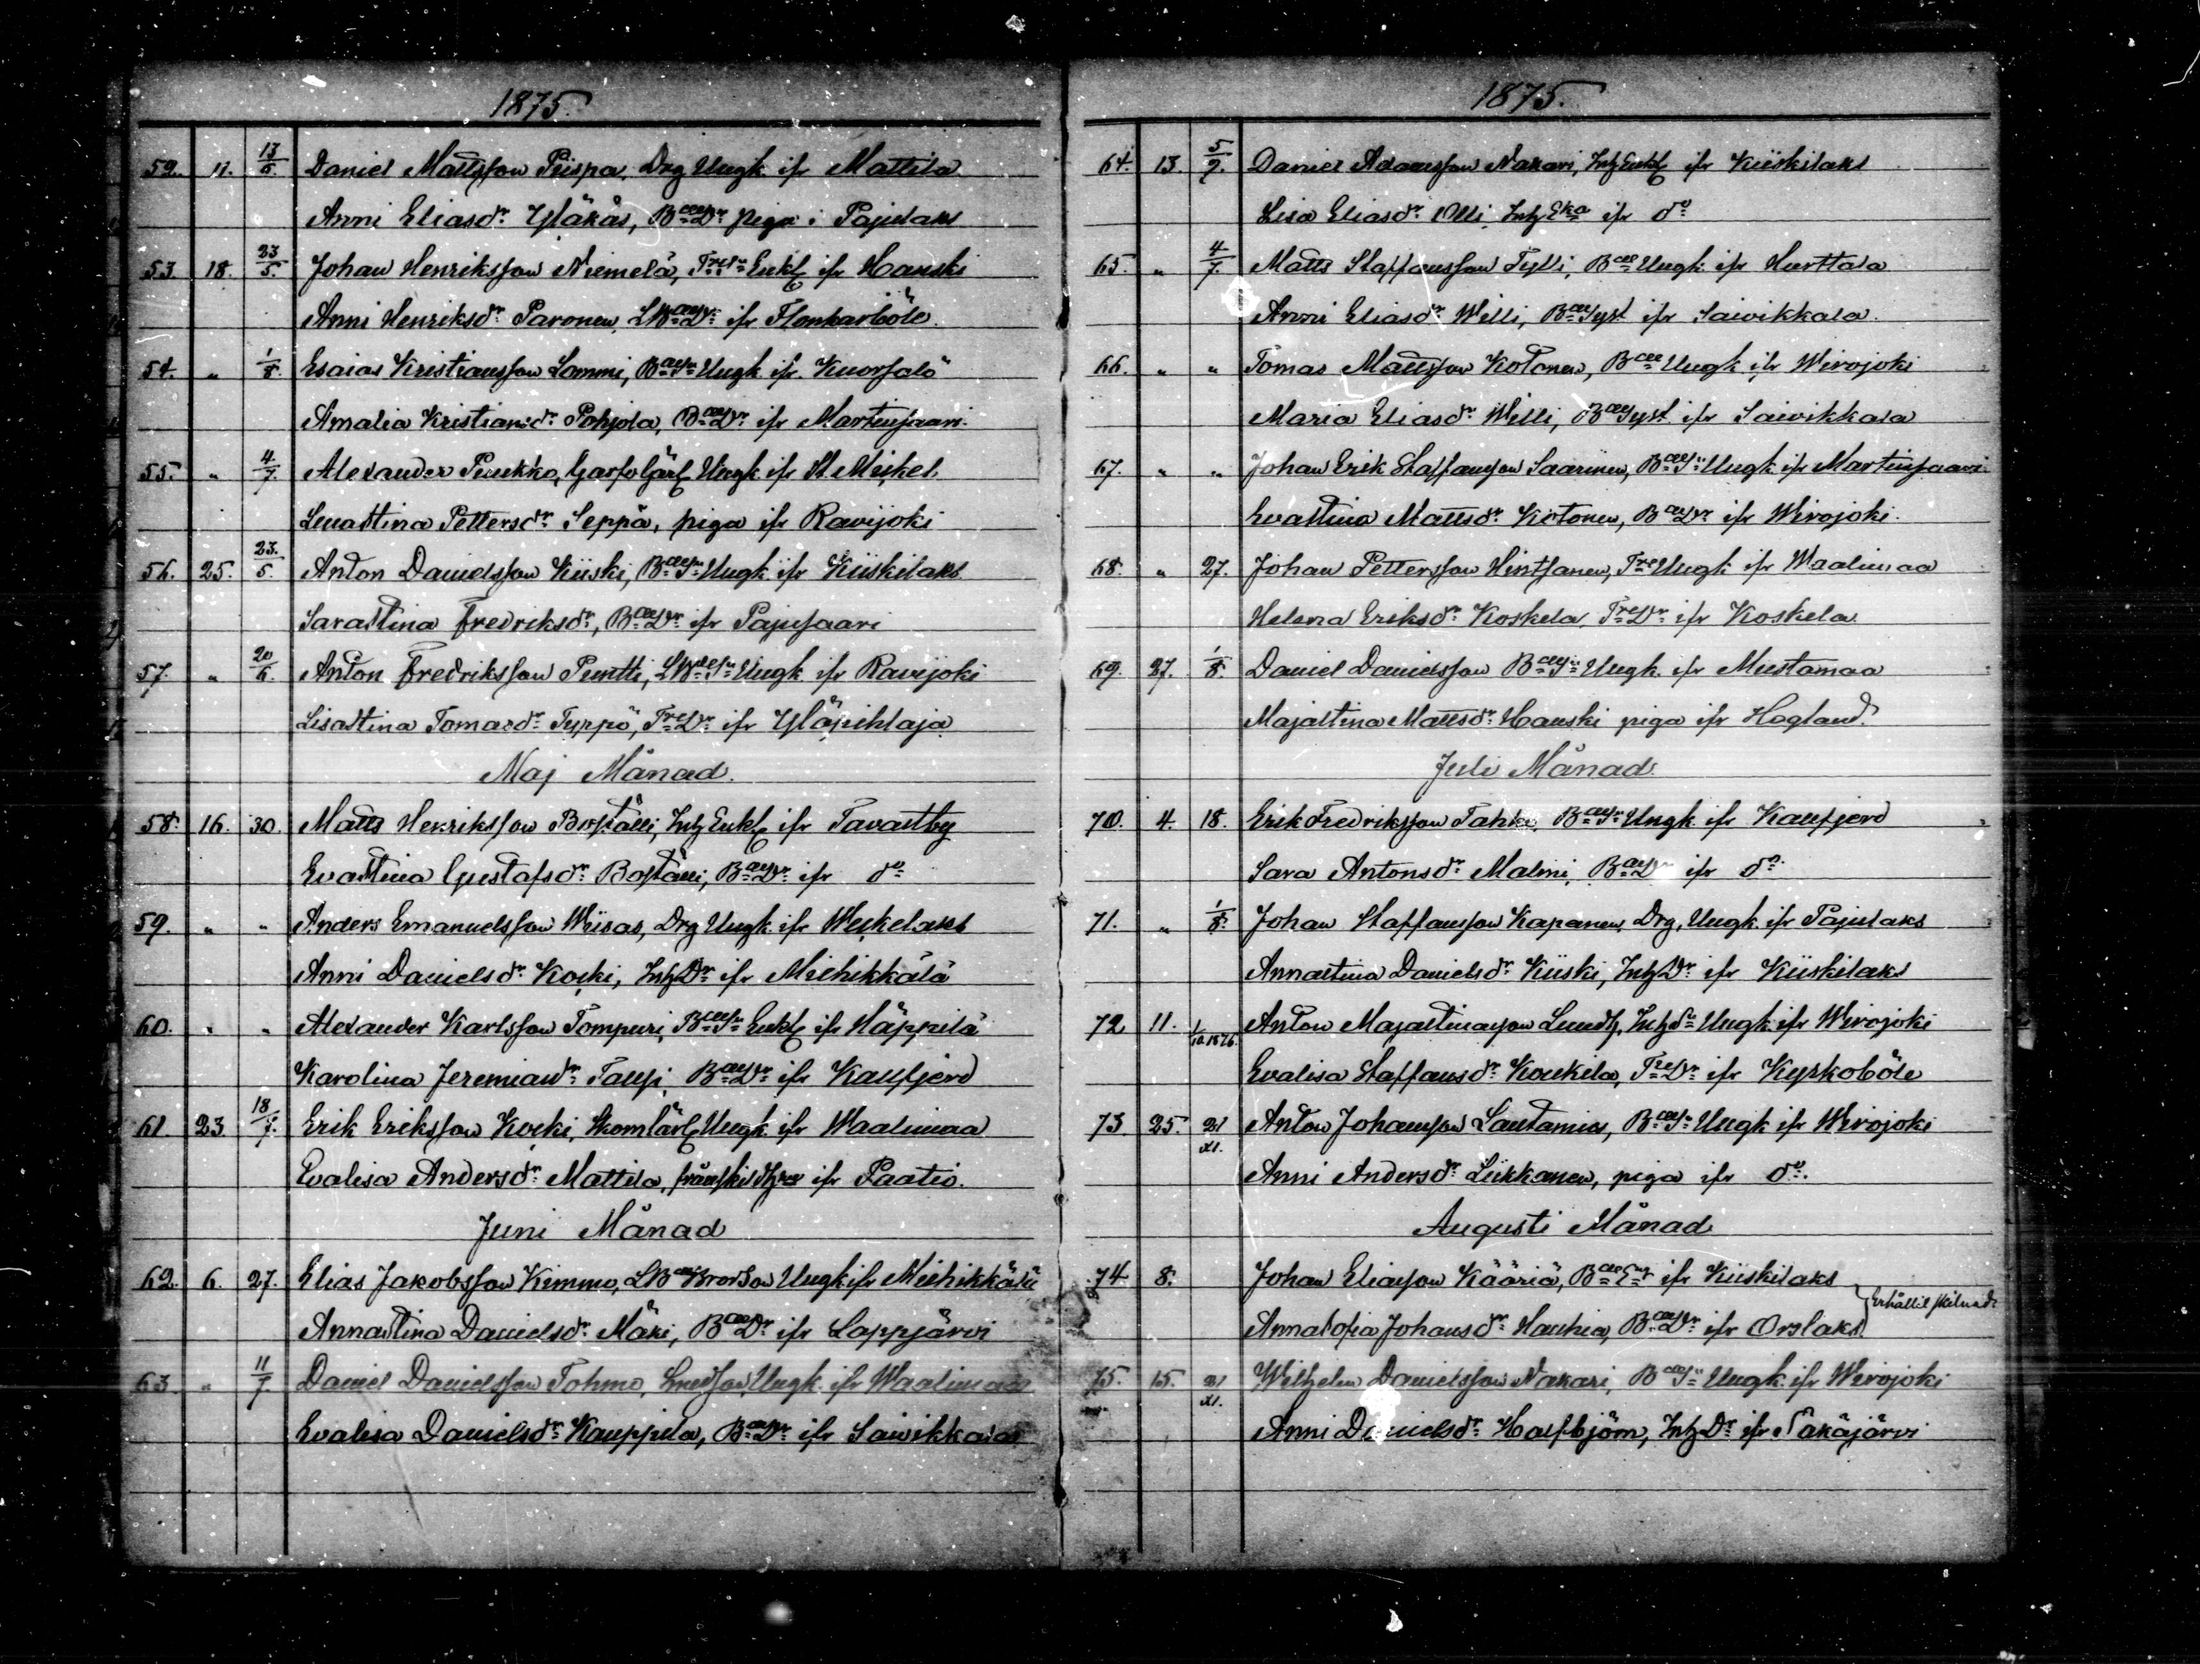 1875.
52. 11. 13/6. Daniel Mattsson Piispa, Drg Ungk. ifr Mattila
Anni Eliasdr Yläkäs, Bdedr piga i Pajulaks
53. 18. 23/5. Johan Henriksson Niemelä, Enkl ifr Hanski
Anni Henriksdr Paronen, ifr Flonkarböle.
54. " 1/8. Esaias Kristiansson Lommi, Ungk. ifr Kuorsalö
Amalia Kristiansdr Pohjola, ifr Martinsaari.
55. " 4/7. Alexander Puukko, Ungk. ifr St Mickel
Lenastina Pettersdr Seppä, piga ifr Ravijoki
56. 25. 23./5. Anton Danielsson Kiiski, Ungk. ifr Kiiskilaks
Sarastina Fredriksdr, ifr Pajusaari
57. " 20/6. Anton Fredriksson Puntti, Ungk. ifr Ravijoki
Lisastina Tomasdr Tyrpö, ifr Yläpihlaja
Maj Månad.
58. 16. 30. Matts Henriksson Enkl ifr Tavastby
Evastina Gustafsdr ifr do
59. " " Anders Emanuelsson Wiisas, Drg Ungk. ifr Weckelaks
Anni Danielsdr Koski, InhDr ifr Miehikkälä
60. " " Alexander Karlsson Tompuri, Enkl ifr Häppilä
Karolina Jeremiasdr ifr Kausfjerd
61. 23. 18/7. Erik Eriksson Koski, Ungk. ifr Waalimaa
Evalisa Andersdr Mattila, ifr Paatio.
Juni Månad
62. 6. 27. Elias Jakobsson Kimmo, Ungk ifr Miehikkälä
Annastina Danielsdr Mäki, ifr Lappjärvi
63. " 11/7. Daniel Danielsson Tohmo, Ungk. ifr Waalimaa
Evalisa Danielsdr Kauppila, ifr Saivikkala
1875.
64. 13. 5/9. Daniel Adamsson Nakari, Inh Enkl ifr Kiiskilaks
Lisa Eliasdr Olli, Inh Eka ifr do
65. " 4/7. Matts Staffansson Tylli, Ungk. ifr Hurttala
Anni Eliasdr Willi, ifr Saivikkala.
66. " " Tomas Mattsson Kotonen, Ungk ifr Wirojoki
Maria Eliasdr Willi, ifr Saivikkala
67. " " Johan Erik Staffansson Saarinen, Ungk ifr Martinsaari
Evastina Mattsdr Kotonen, ifr Wirojoki.
68. " 27. Johan Pettersson Hintsanen, Ungk ifr Waalimaa
Helena Eriksdr Koskela, ifr Koskela.
69. 27. 1/8. Daniel Danielsson Ungk. ifr Mustamaa
Majastina Mattsdr Hanski piga ifr Hogland.
Juli Månad.
70. 4. 18. Erik Fredriksson Ungk. ifr Kausfjerd
Sara Antonsdr Malmi, ifr do
71. " 1/8. Johan Staffansson Kapanen, Drg, Ungk. ifr Pajulaks
Annastina Danielsdr Kiiski, InhDr ifr Kiiskilaks
72. 11. 1/10.1876. Anton Majastinason Ungk. ifr Wirojoki
Evalisa Staffansdr Konkila, ifr Kyrkoböle
73. 25. 21/XI. Anton Johansson Ungk ifr Wirojoki
Anni Andersdr Liikkanen, piga ifr do.
Augusti Månad
74. 8. Johan Eliasson Kääriä, ifr Kiiskilaks
Annasofia Johansdr ifr Orslaks.
Erhållit skilnad.
75. 15. 21/XI. Wilhelm Danielsson Nakari, Ungk. ifr Wirojoki
Anni Danielsdr Halfbjörn, InhDr ifr Säkäjärvi